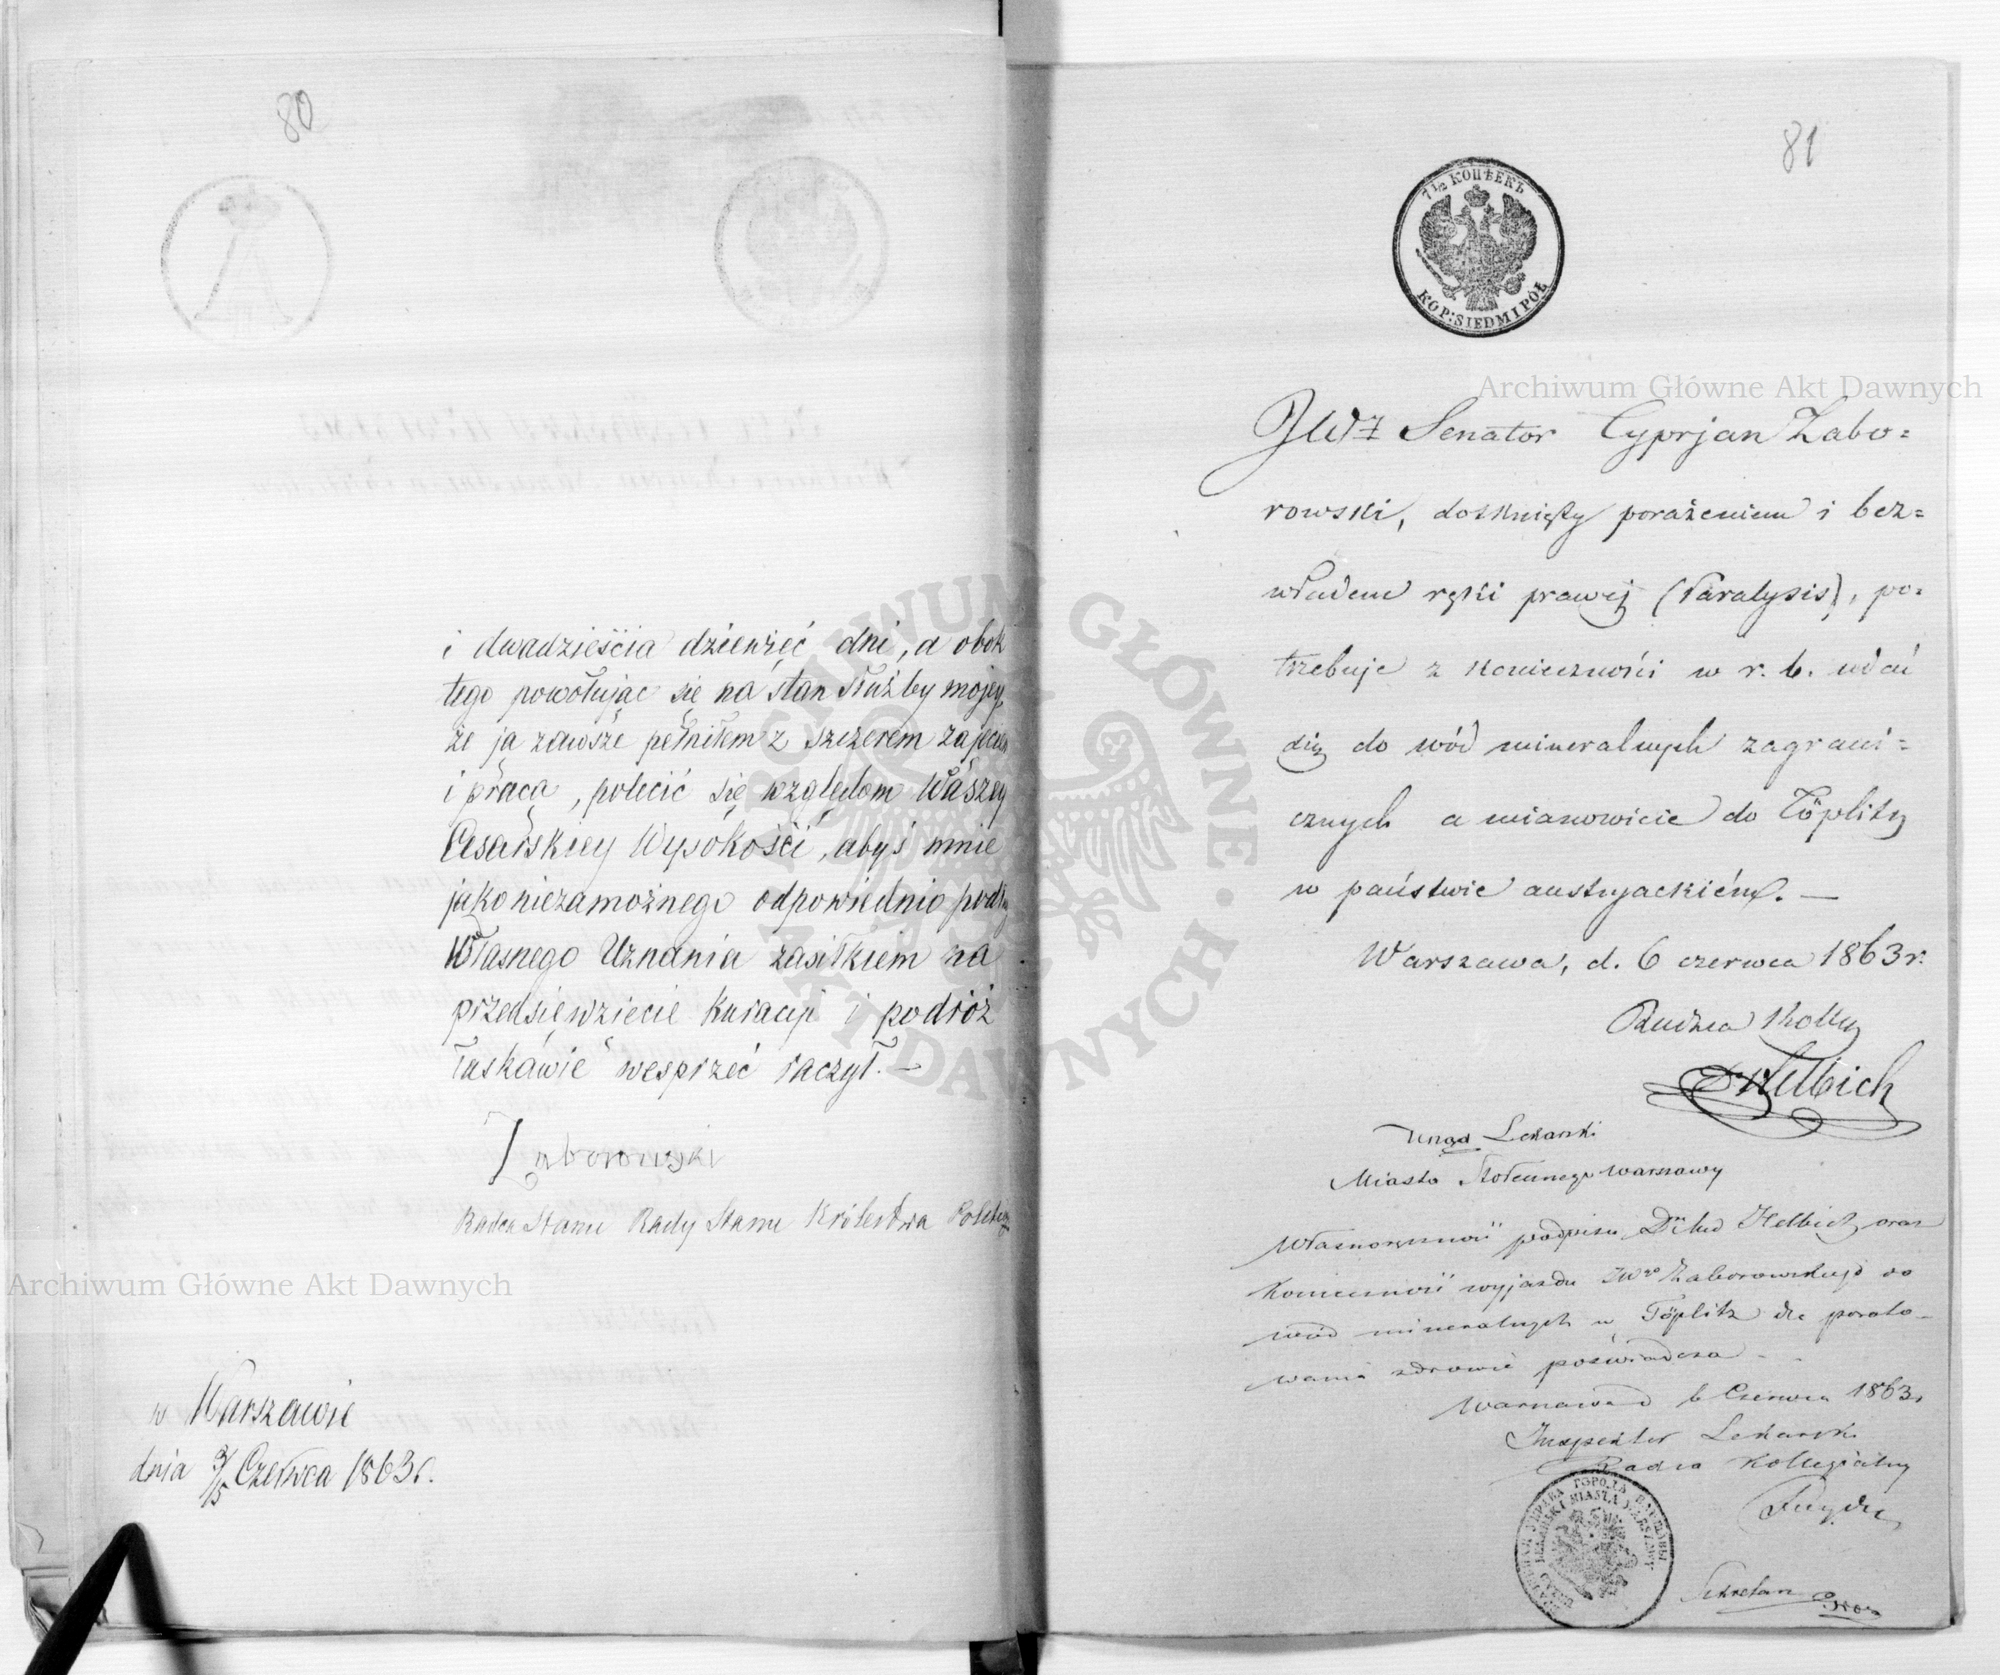 80
i dwadzieścia dziewięć dni, a obok
tego powołując się na stan służby mojey,
że ja zawsze pełniłem z szczerem zajęciem
i pracą, polecić się względom Waszey
Cesarskiey Wysokości, abyś mnie
jako niezamożnego odpowiednio podług
Własnego Uznania zasiłkiem na
przedsięwzięcie kuracji i podróż
łaskawie wesprzeć raczył. —
Zaborowski
Radca Stanu Rady Stanu Królestwa Polskiego
w Warszawie
dnia 3/15 Czerwca 1863 r.
81
7 1/2 КОПѢЕКЪ
KOP: SIEDM I PÓŁ
JWż Senator Cyprjan Zabo=
rowski, dotknięty porażeniem i bez=
władem ręki prawej (Paralysis), po=
trzebuje z konieczności w r. b. udać
się do wód mineralnych zagrani=
cznych a mianowicie do Töplitz
w państwie austryjackiém. —
Warszawa, d. 6 czerwca 1863 r.
Radzca Kolleg
Dr Helbich
Urząd Lekarski
Miasta Stołecznego Warszawy
Własnoręczność podpisu Dra Med Helbich oraz
konieczność wyjazdu JWgo Zaborowskiego do
wód mineralnych w Töplitz dla porato-
wania zdrowia poświadcza —
Warszawa d 6 Czerwca 1863 r
Inspektor Lekarski
Radca Kollegialny
Sekretarz
URZĄD LEKARSKI MIASTA WARSZAWY
Archiwum Główne Akt Dawnych
Archiwum Główne Akt Dawnych
ARCHIWUM GŁÓWNE · AKT DAWNYCH ·